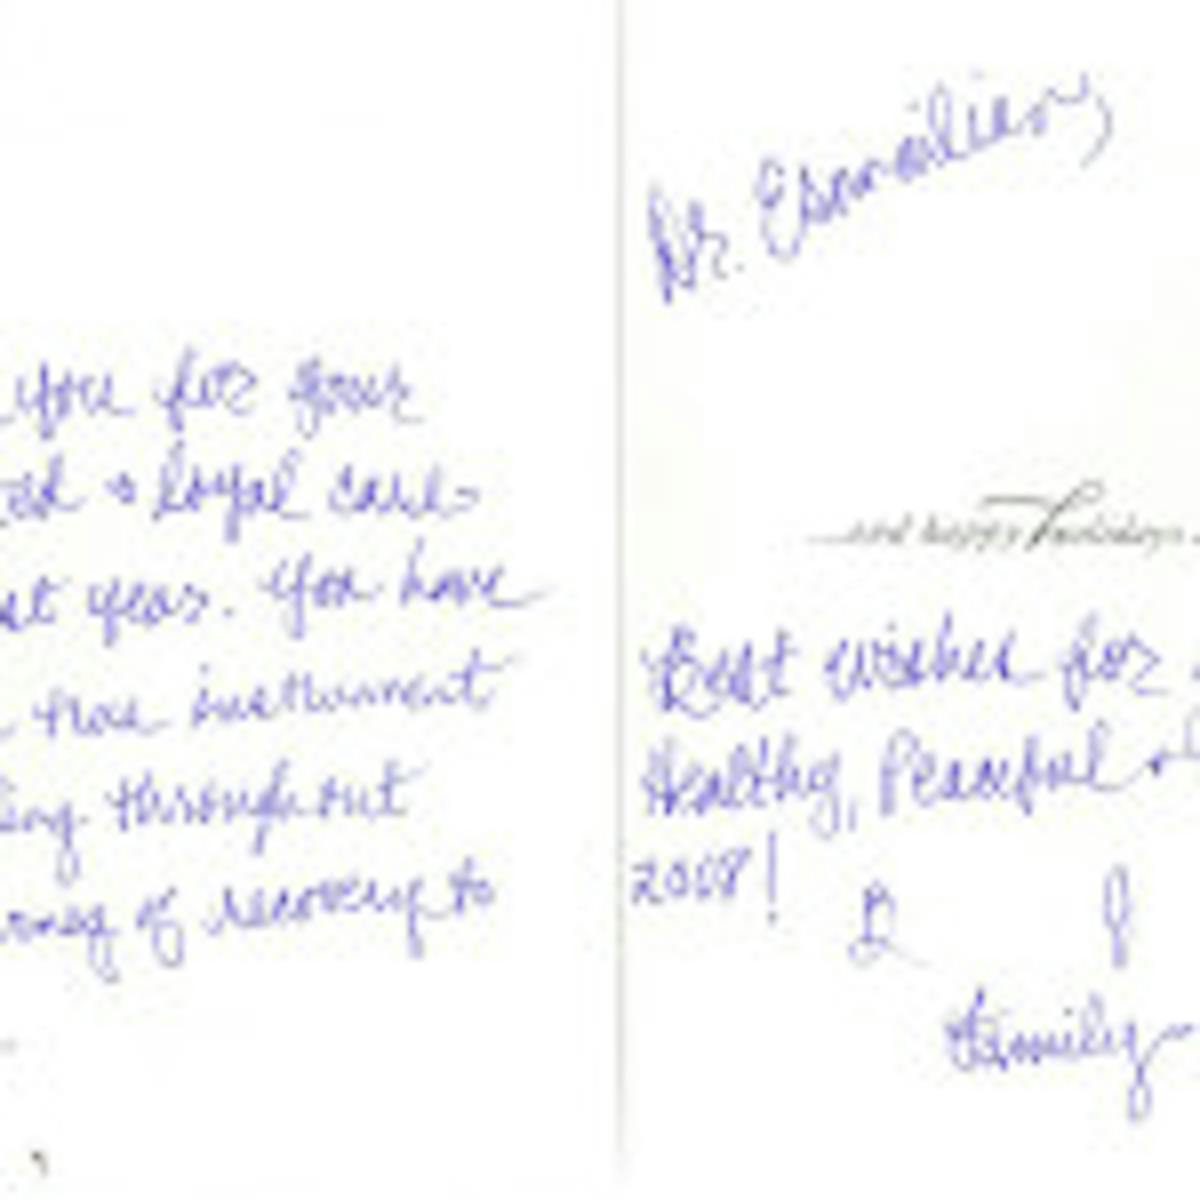 you for your
ed & loyal care
st year. You have
true instrument
ing throughout
rney of recovery to
Dr. Esmailian,
and happy holidays
Best wishes for
Healthy, Peaceful &
2008!
Family